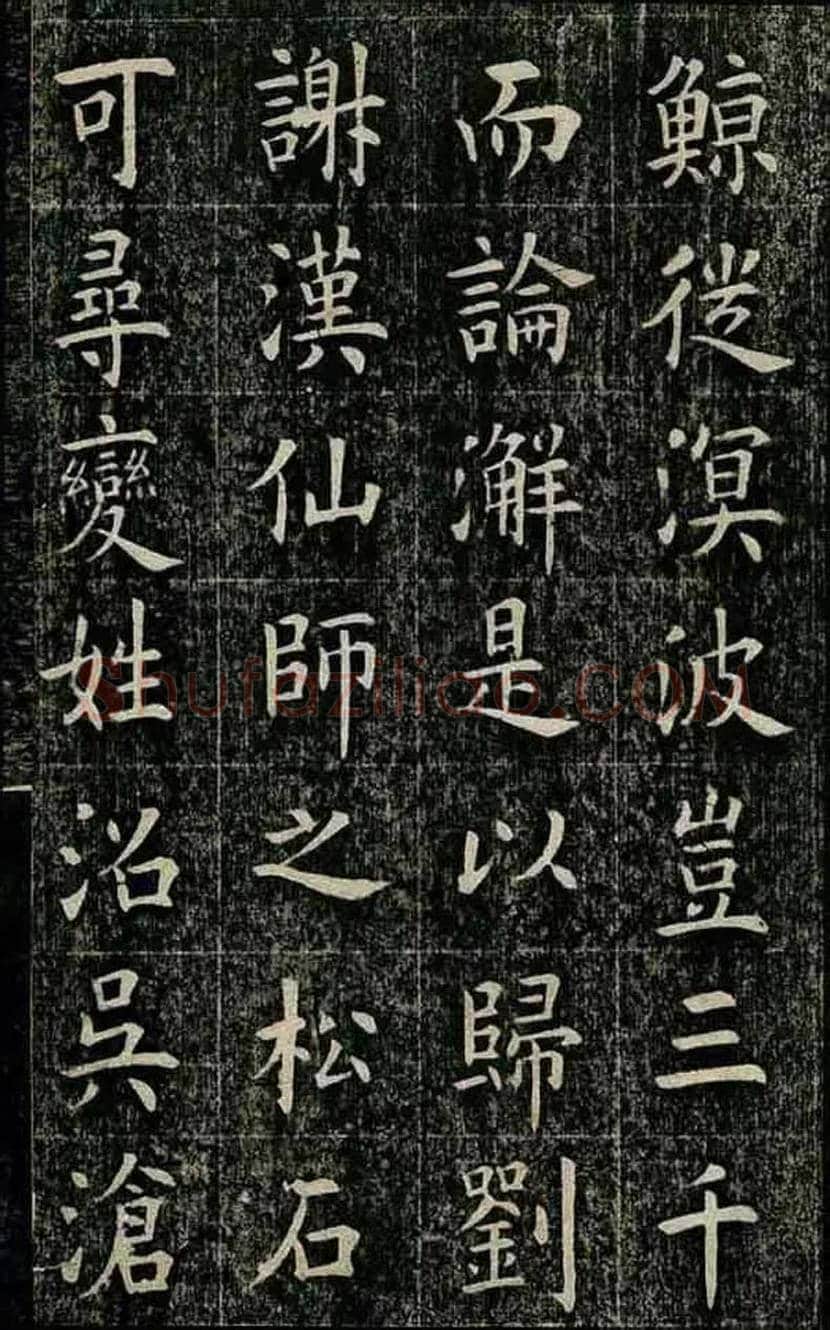 鯨従溟波豈三千
而論澥是以歸劉
謝漢仙師之松石
可尋變姓沿吳滄
Shufaziliao.COM